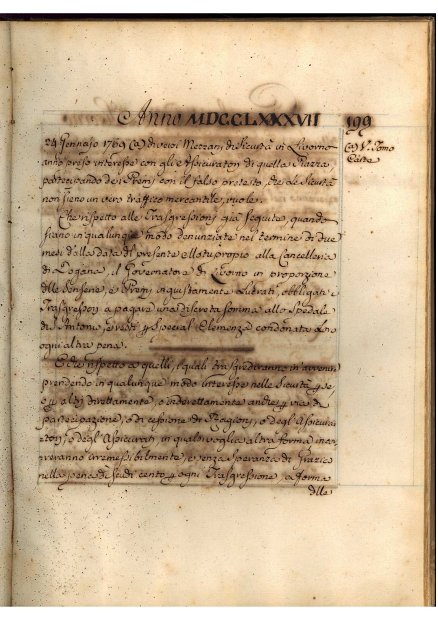 Anno MDCCLXXXVII
199
24 Gennajo 1769 (a) diversi Mezzani di Sicurtà in Livorno
(a) V. Tomo
anno preso interesse con gli Assicuratori di quella Piazza
Carte
partecipando dei Premj con il falso protesto, che le Sicurtà
non sieno un vero traffico mercantile, vuole
Che rispetto alle Trasgressioni già seguite, quando
siano in qualunque modo denunziate nel termine di due
mesi dalla data del presente Motuproprio alla Cancelleria
di Dogana, il Governatore di Livorno in proporzione
delle Senserie, e Premj ingiustamente Lucrati, obblighi i
Trasgressori a pagare una discreta somma allo Spedale
di S. Antonio, e resti p special Clemenza condonata loro
ogni altra pena.
E che rispetto a quelli, i quali trasgrediranno in avvenire
prendendo in qualunque modo interesse nelle Sicurtà p se,
o p altri direttamente, o indirettamente anche p via di
partecipazione, o di cessione di Ragioni, o degl'Assicura
tori, o degl'Assicurati, in qual si voglia altra forma incor
reranno irremissibilmente, e senza speranza di Grazia
nella pena di scudi cento p ogni Trasgressione, a forma
della